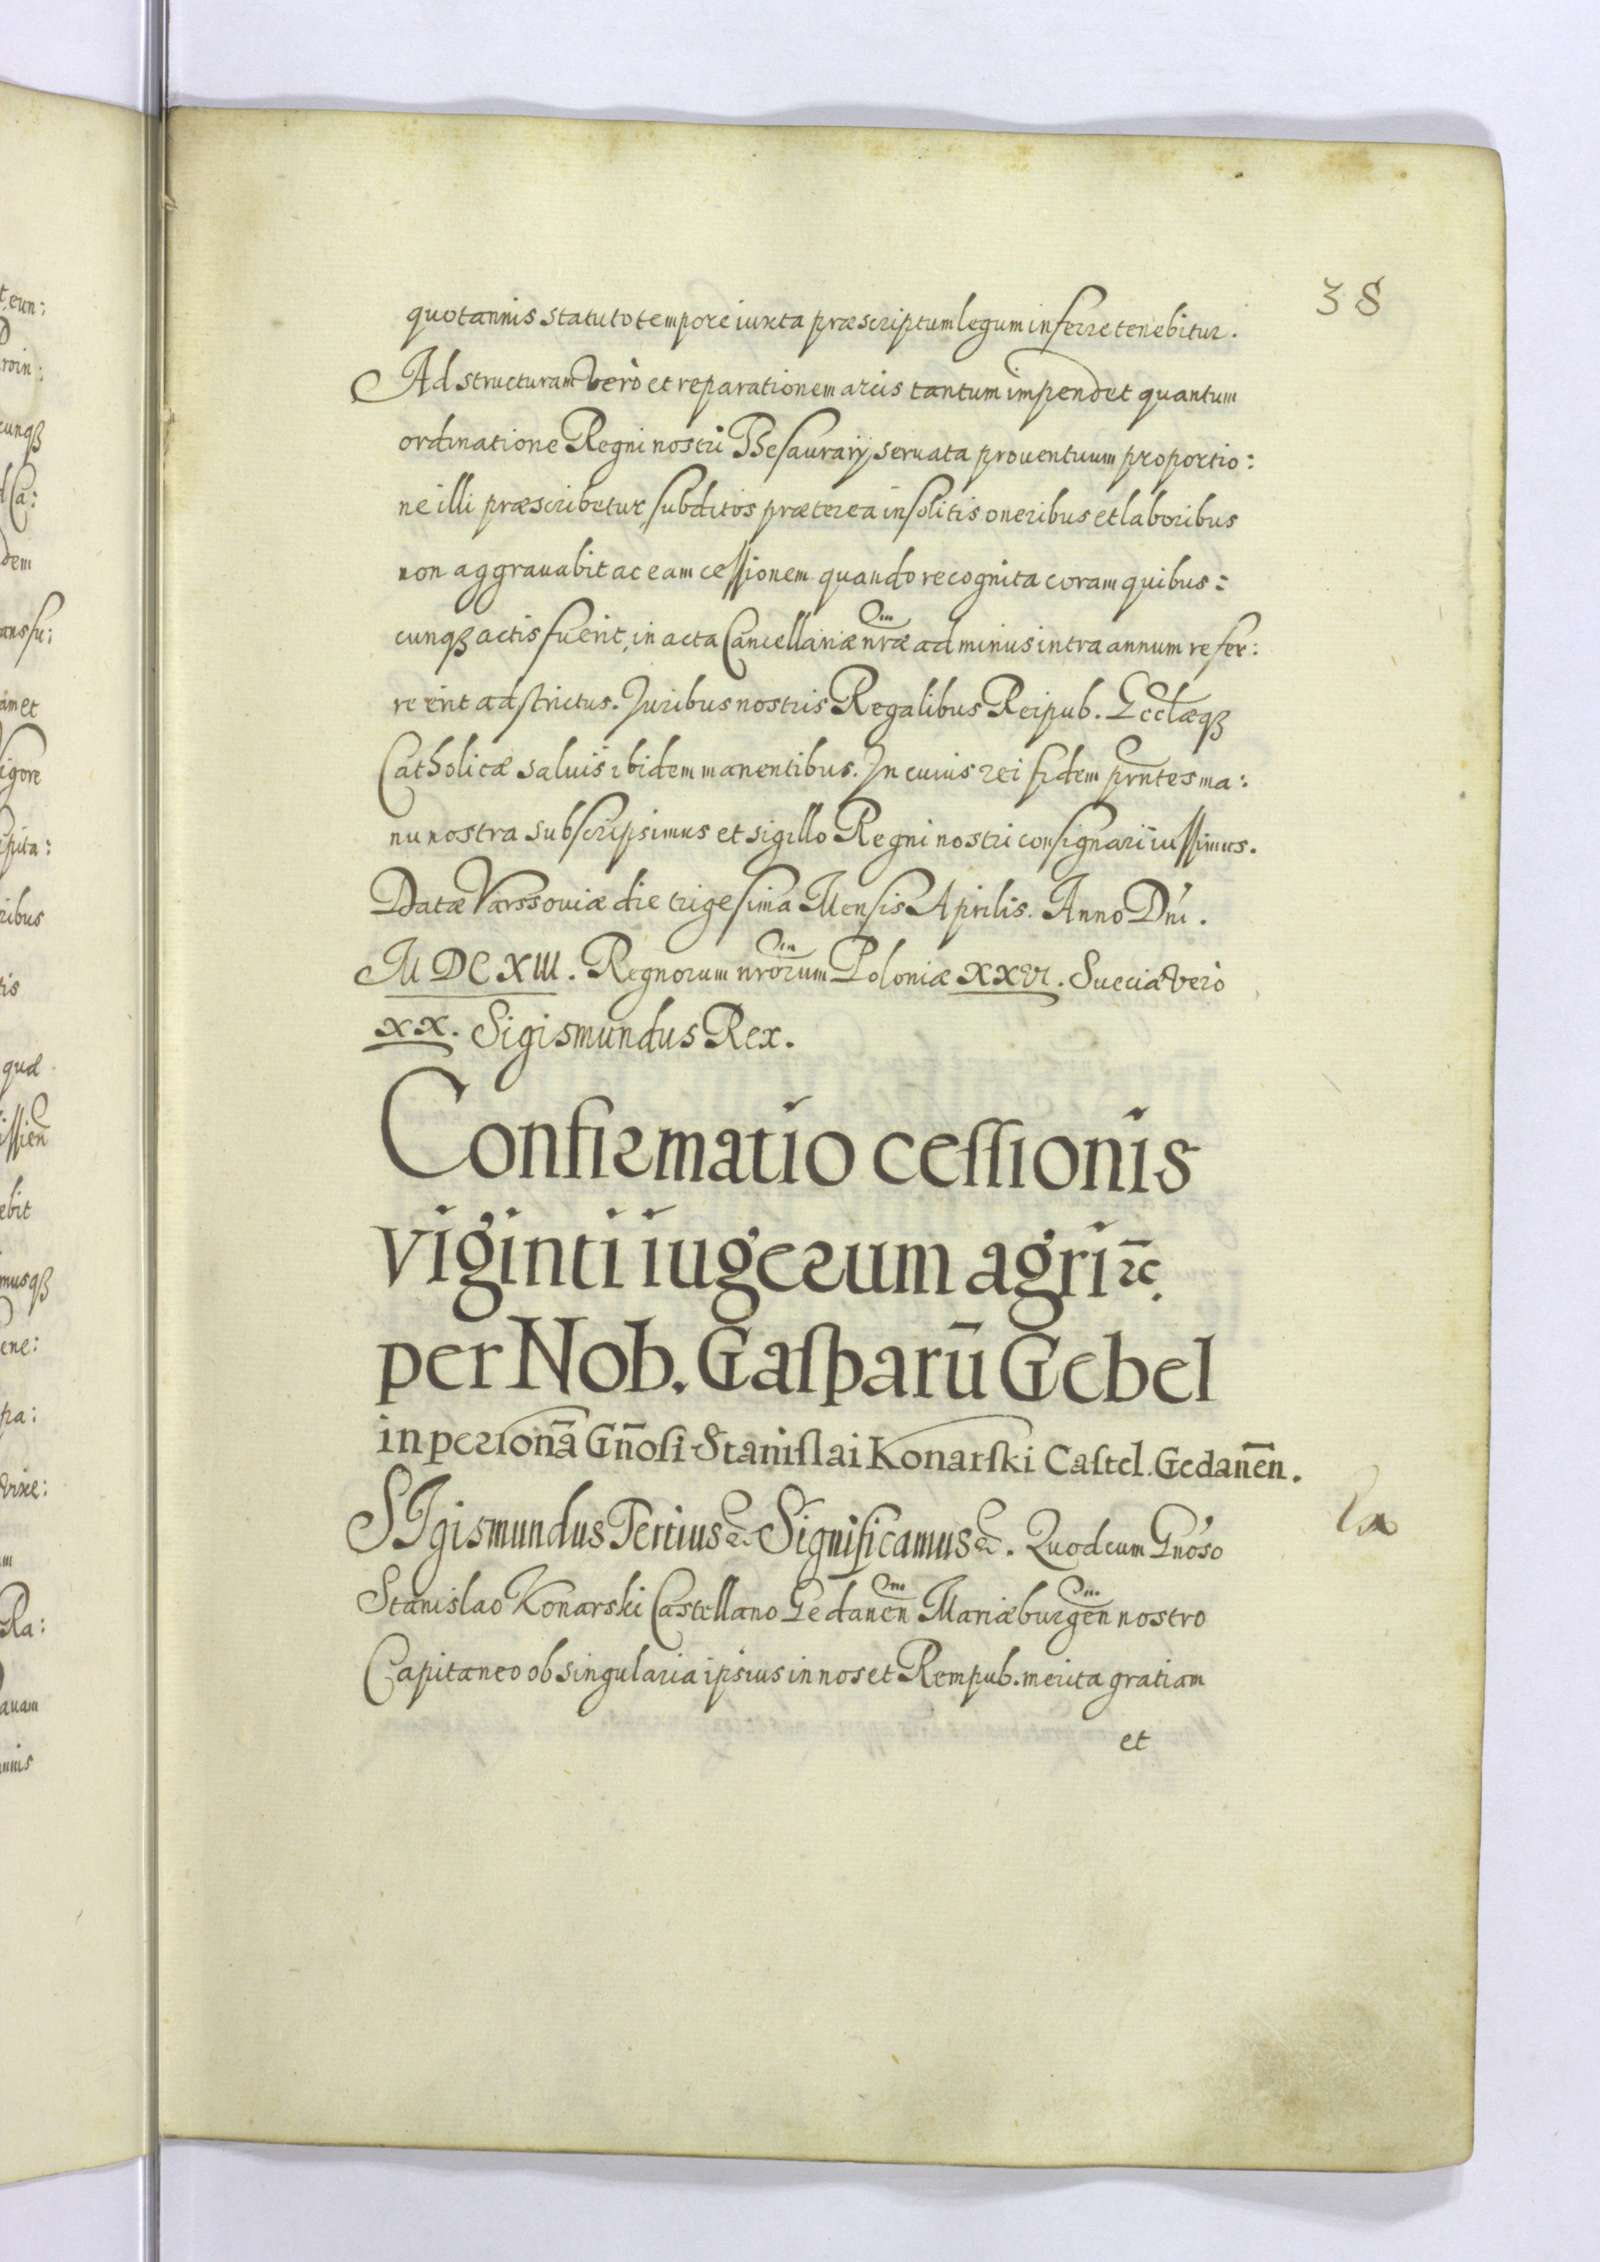 38
quotannis statuto tempore iuxta præscriptum legum inferre tenebitur.
Ad structuram verò et reparationem arcis tantum impendet quantum
ordinatione Regni nostri Thesaurarij seruata prouentuum proportio:
ne illi præscribetur, subditos præterea insolitis oneribus et laboribus
non aggrauabit ac eam cessionem quando recognita coram quibus:
cunqꝫ actis fuerit, in acta Cancellariæ nr̃æ ad minus intra annum refer:
re erit adstrictus. Iuribus nostris Regalibus Reipub. Ecclæqꝫ
Catholicæ saluis ibidem manentibus. In cuius rei fidem pr̃ntes ma:
nu nostra subscripsimus et sigillo Regni nostri consignari iussimus.
Datæ Varssouiæ die trigesima Mensis Aprilis. Anno Dñi.
MDCXIII. Regnorum nr̃orum Poloniæ XXVI. Sueciæ verò
XX. Sigismundus Rex.
Confirmatio cessionis
viginti iugerum agri ꝛc̄.
per Nob. Gasparū Gebel
in personā Gñosi Stanislai Konarski Castel. Gedanen̄.
SIgismundus Tertius ꝛc. Significamus ꝛc. Quod cum Gñoso
Stanislao Konarski Castellano Gedanen̄ Mariæburgen̄ nostro
Capitaneo ob singularia ipsius in nos et Rempub. merita gratiam
et